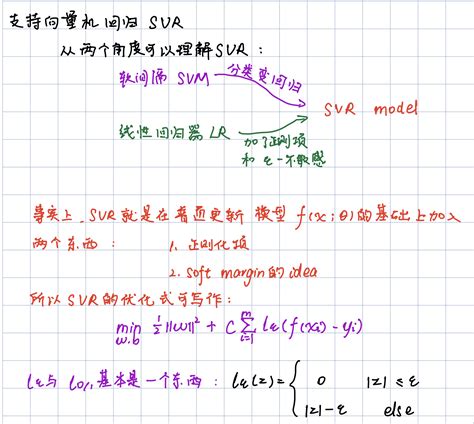 支持向量机回归 SVR
从两个角度可以理解SVR：
软间隔 SVM 分类变回归
SVR model
线性回归器 LR 加了正则项
和 ε-不敏感
事实上，SVR 就是在普通更新 模型 f(x;θ)的基础上加入
两个东西： 1. 正则化项
2. soft margin的idea
所以 SVR 的优化式可写作：
min_{w,b} ½||w||² + C∑_{i=1}^{m} lε(f(xi) - yi)
lε与 l0/1 基本是一个东西： lε(z)={ 0 |z| ≤ ε
|z|-ε else